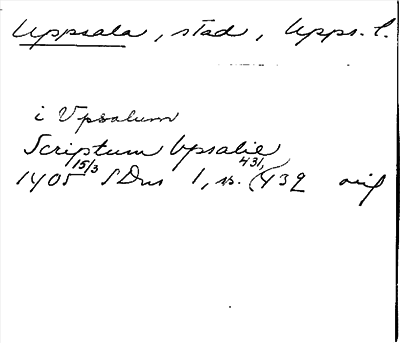 Uppsala, stad, Upps. l.
i Vpsalum
Scriptum Vpsalie
1405 15/3 SDns 1, s. (431,) 432 orig